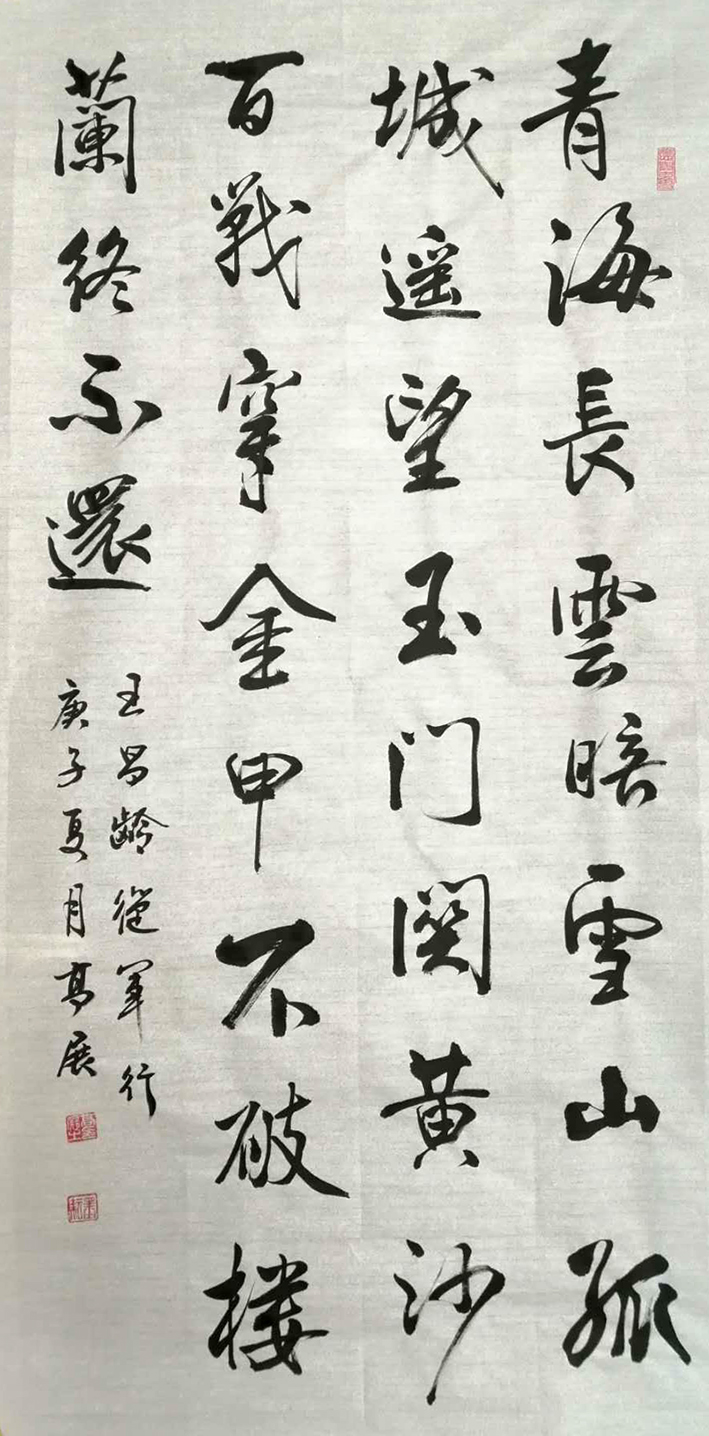 青海長雲暗雪山孤
城遥望玉门関黄沙
百戰穿金甲不破樓
蘭终不還
王昌齡從军行
庚子夏月高展